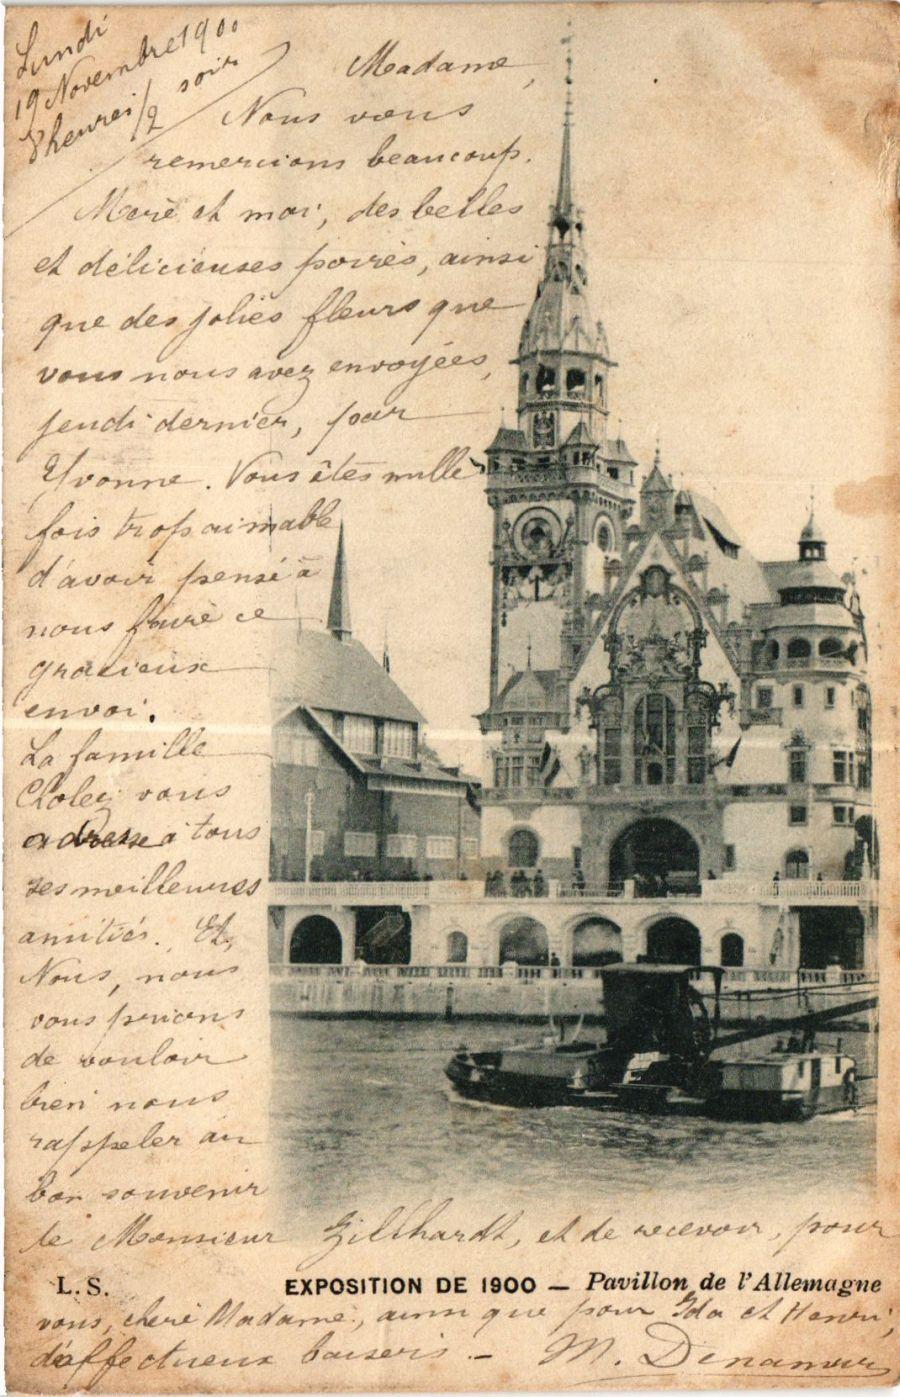 Lundi
19 Novembre 1900
8 heures 1/2 soir
Madame,
Nous vous
remercions beaucoup.
Mère et moi, des belles
et délicieuses poires, ainsi
que des jolies fleurs que
vous nous avez envoyées,
jeudi dernier, par
Yvonne. Vous êtes mille
fois trop aimable
d'avoir pensé à
nous faire ce
gracieux
envoi.
La famille
Choley vous
adresse à tous
ses meilleures
amitiés. Et,
Nous, nous
vous prions
de vouloir
bien nous
rappeler au
bon souvenir
de Monsieur Gillhardt, et de recevoir, pour
L. S. EXPOSITION DE 1900 — Pavillon de l'Allemagne
vous, chère Madame, ainsi que pour Ida et Henri,
d'affectueux baisers. - M. Denamur